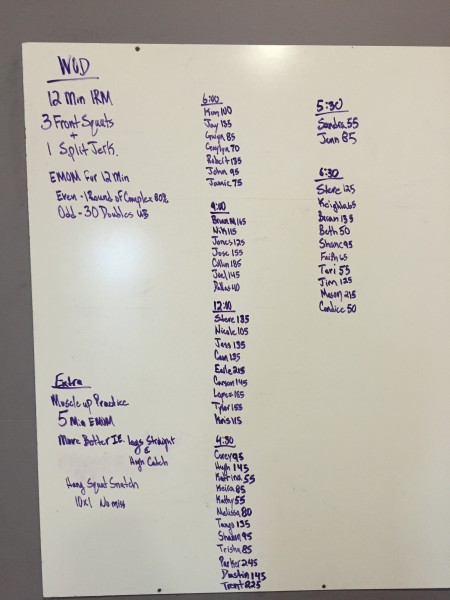 WOD
12 Min 1RM
3 Front Squats
+
1 Split Jerk.
EMOM for 12 min
Even - 1 Round of Complex 80%
Odd - 30 Doubles UB
Extra
Muscle up Practice
5 Min EMOM
More Better If legs straight
&
High Catch
Hang Squat Snatch
10x1 No miss
6:00
Kim 100
Jay 135
Gwyn 85
70
Robert 135
John 95
Jamie 75
9:00
Brian M 165
Nik 115
Jones 125
Jose 155
Collin 185
Joel 145
Dallas 40
12:10
Steve 185
Nicole 105
Jess 135
Cam 135
Earle 215
Carson 145
Lopez 165
Tyler 155
Kris 115
4:30
Corey 95
Hugh 145
Katrina 55
Keisa 85
Kathy 55
Melissa 80
Tango 135
Shadan 95
Trisha 85
Parker 245
Dustin 145
Trent 225
5:30
Sandra 55
Jenn 85
6:30
Steve 125
Keighla 65
Brian 135
Beth 50
Shane 95
Faith 65
Tari 55
Jim 125
Mason 215
Candice 50